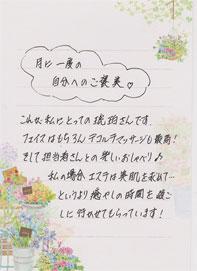 月に一度の
自分へのご褒美♡
これが、私にとっての琥珀さんです。
フェイスはもちろんデコルテマッサージも最高!
そして担当者さんとの楽しいおしゃべり♪
私の場合エステは美肌を求めて…
というより癒やしの時間を過ご
しに行かせてもらっています!